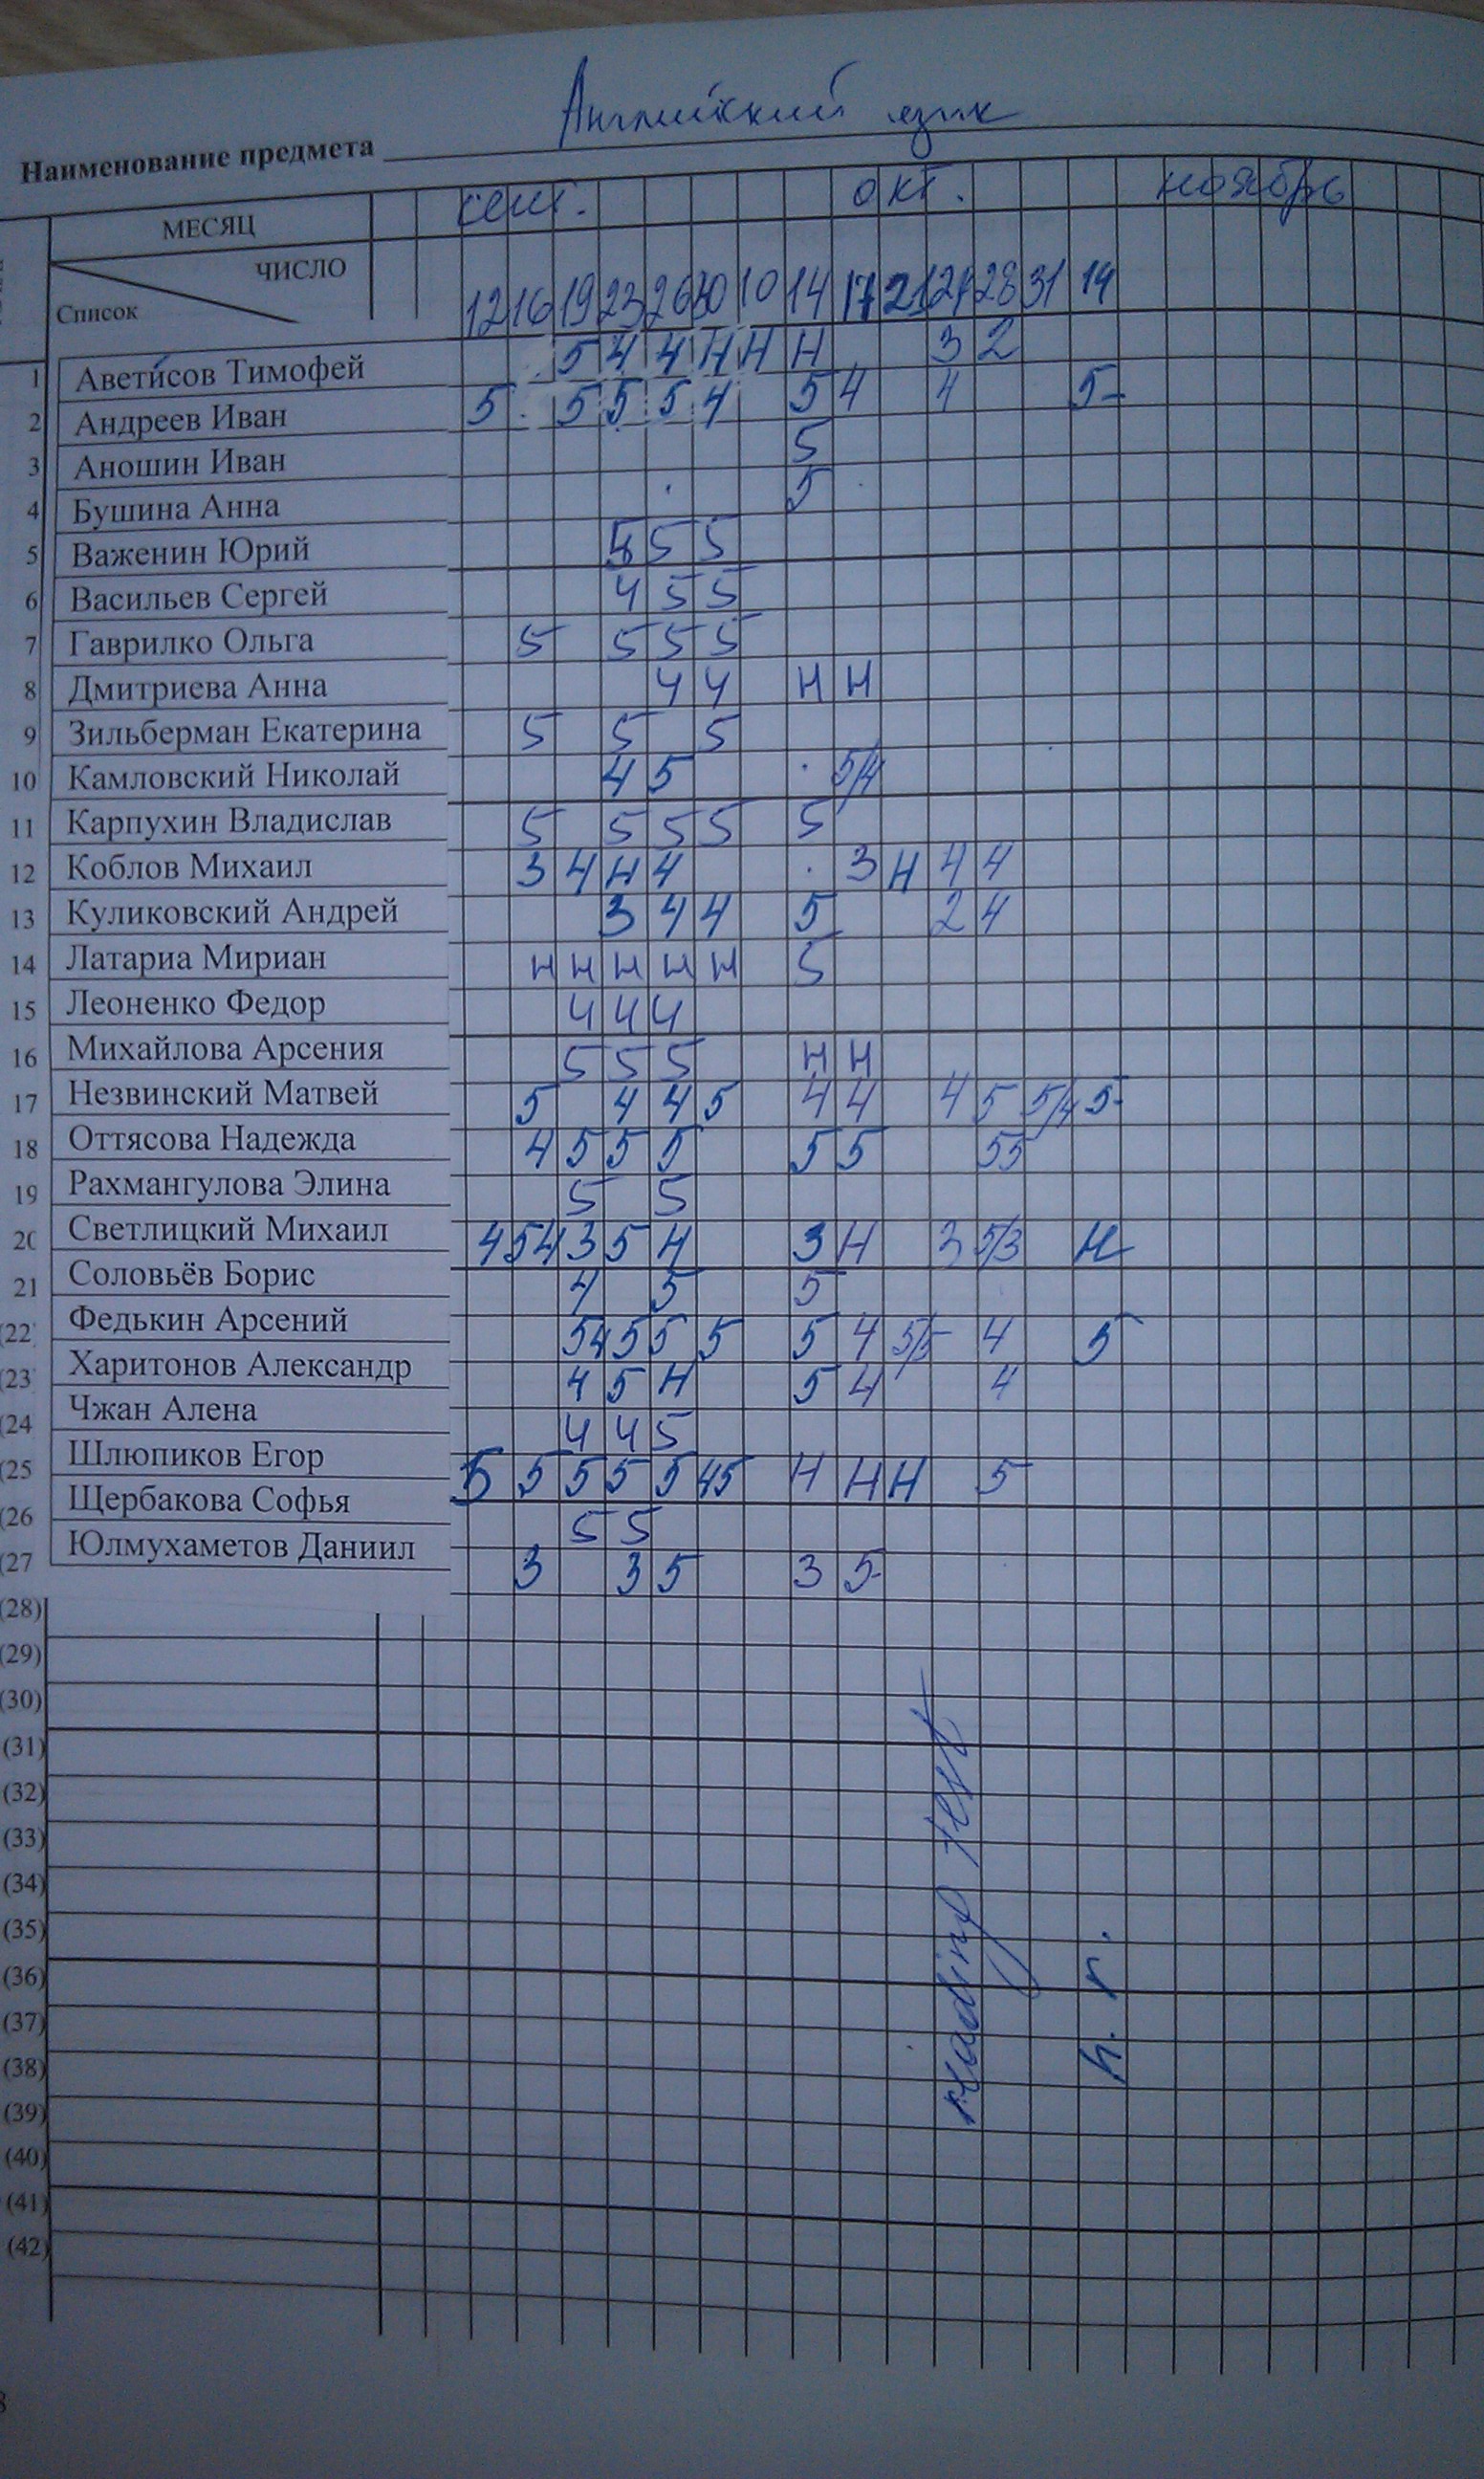 Наименование предмета Английский язык
МЕСЯЦ сент. окт. ноябрь
ЧИСЛО
Список 12 16 19 23 26 30 10 14 17 21 24 28 31 14
1 Аветисов Тимофей 5 4 4 Н Н Н 3 2
2 Андреев Иван 5 5 5 5 4 5 4 4 5-
3 Аношин Иван 5
4 Бушина Анна 5
5 Важенин Юрий 5 5 5
6 Васильев Сергей 4 5 5
7 Гаврилко Ольга 5 5 5 5
8 Дмитриева Анна 4 4 Н Н
9 Зильберман Екатерина 5 5 5
10 Камловский Николай 4 5 5/4
11 Карпухин Владислав 5 5 5 5 5
12 Коблов Михаил 3 4 Н 4 3 Н 4 4
13 Куликовский Андрей 3 4 4 5 2 4
14 Латариа Мириан Н Н Н Н Н 5
15 Леоненко Федор 4 4 4
16 Михайлова Арсения 5 5 5 Н Н
17 Незвинский Матвей 5 4 4 5 4 4 4 5 5/4 5-
18 Оттясова Надежда 4 5 5 5 5 5 55
19 Рахмангулова Элина 5 5
20 Светлицкий Михаил 4 54 3 5 Н 3 Н 3 5/3 Н
21 Соловьёв Борис 4 5 5
(22) Федькин Арсений 54 5 5 5 5 4 5/5 4 5
(23) Харитонов Александр 4 5 Н 5 4 4
(24 Чжан Алена 4 4 5
(25 Шлюпиков Егор 5 5 5 5 5 45 Н Н Н 5
(26 Щербакова Софья 5 5
(27 Юлмухаметов Даниил 3 3 5 3 5-
(28)
(29)
(30)
(31)
(32)
(33)
(34)
(35)
(36)
(37)
(38)
(39)
(40)
(41)
(42)
reading test
h. r.